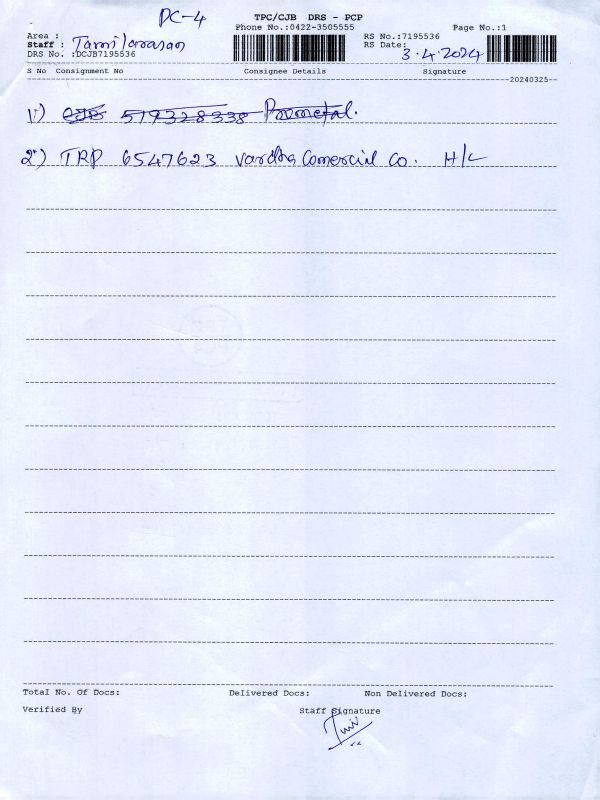 PC-4
TPC/CJB DRS - PCP
Phone No.:0422-3505555 Page No.:1
Area : RS No.:7195536
Staff : Tamilarasan RS Date: 3.4.2024
DRS No. :DCJB7195536
S No Consignment No Consignee Details Signature
20240325
1) CJB 519328338 Prometal.
2) TRP 6547623 Vardha Comercial Co. H/L
Total No. Of Docs: Delivered Docs: Non Delivered Docs:
Verified By Staff Signature